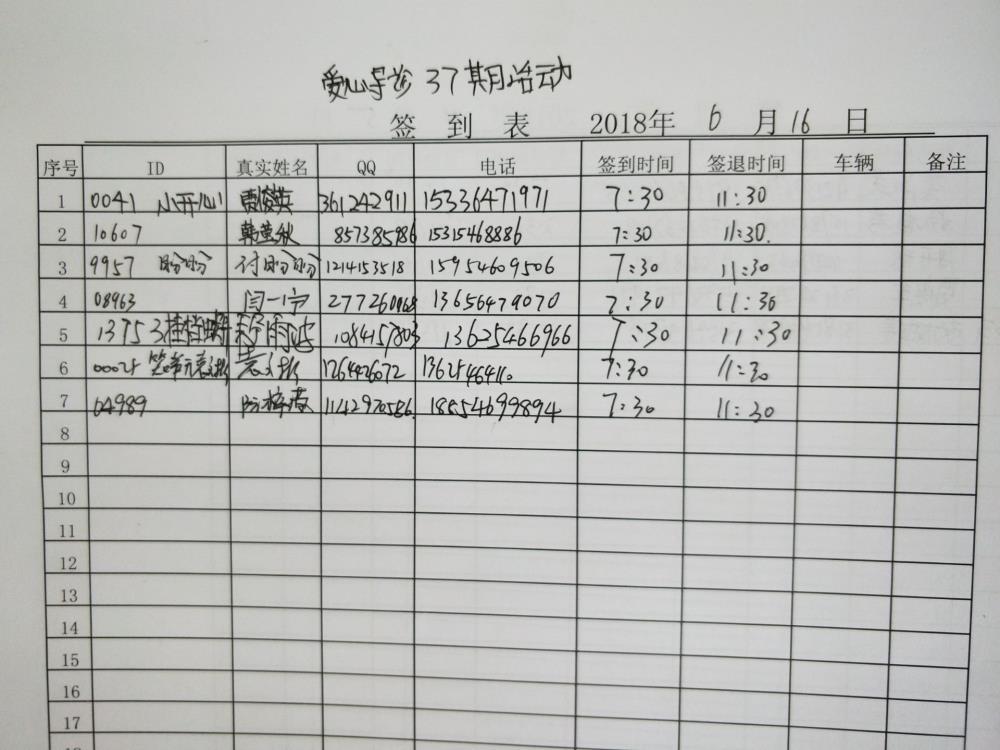 爱心导诊37期活动
签到表 2018年6月16日
序号 ID 真实姓名 QQ 电话 签到时间 签退时间 车辆 备注
1 0041 小开心 361242911 15336471971 7:30 11:30
2 10607 857385986 15315468886 7:30 11:30.
3 9957 盼盼 付盼盼 1214153518 15954609506 7:30 11:30
4 08963 闫一宁 277260068 13656479070 7:30 11:30
5 13753 1084157803 13625466966 7:30 11:30
6 00025 7:30 11:30
7 04989 1142970586. 18554699894 7:30 11:30
8
9
10
11
12
13
14
15
16
17